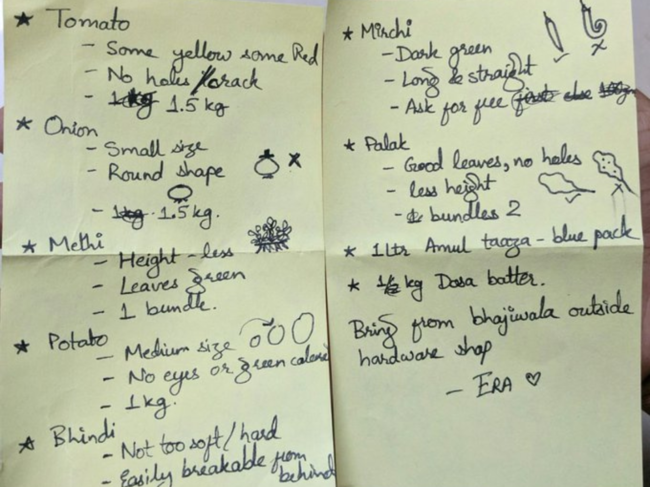 ★ Tomato
- Some yellow some Red
- No holes / crack
- 1.5 kg
★ Onion
- Small size
- Round shape
- 1.5 kg.
★ Methi
- Height - less
- Leaves green
- 1 bundle.
★ Potato
- Medium size
- No eyes or green
- 1 kg.
★ Bhindi
- Not too soft / hard
- Easily breakable from
behind
★ Mirchi
- Dark green
- Long & straight
- Ask for free
★ Palak
- Good leaves, no holes
- less height
- bundles 2
★ 1 Ltr Amul taaza - blue pack
★ kg Dosa batter.
Bring from bhajiwala outside
hardware shop
- ERA ♡